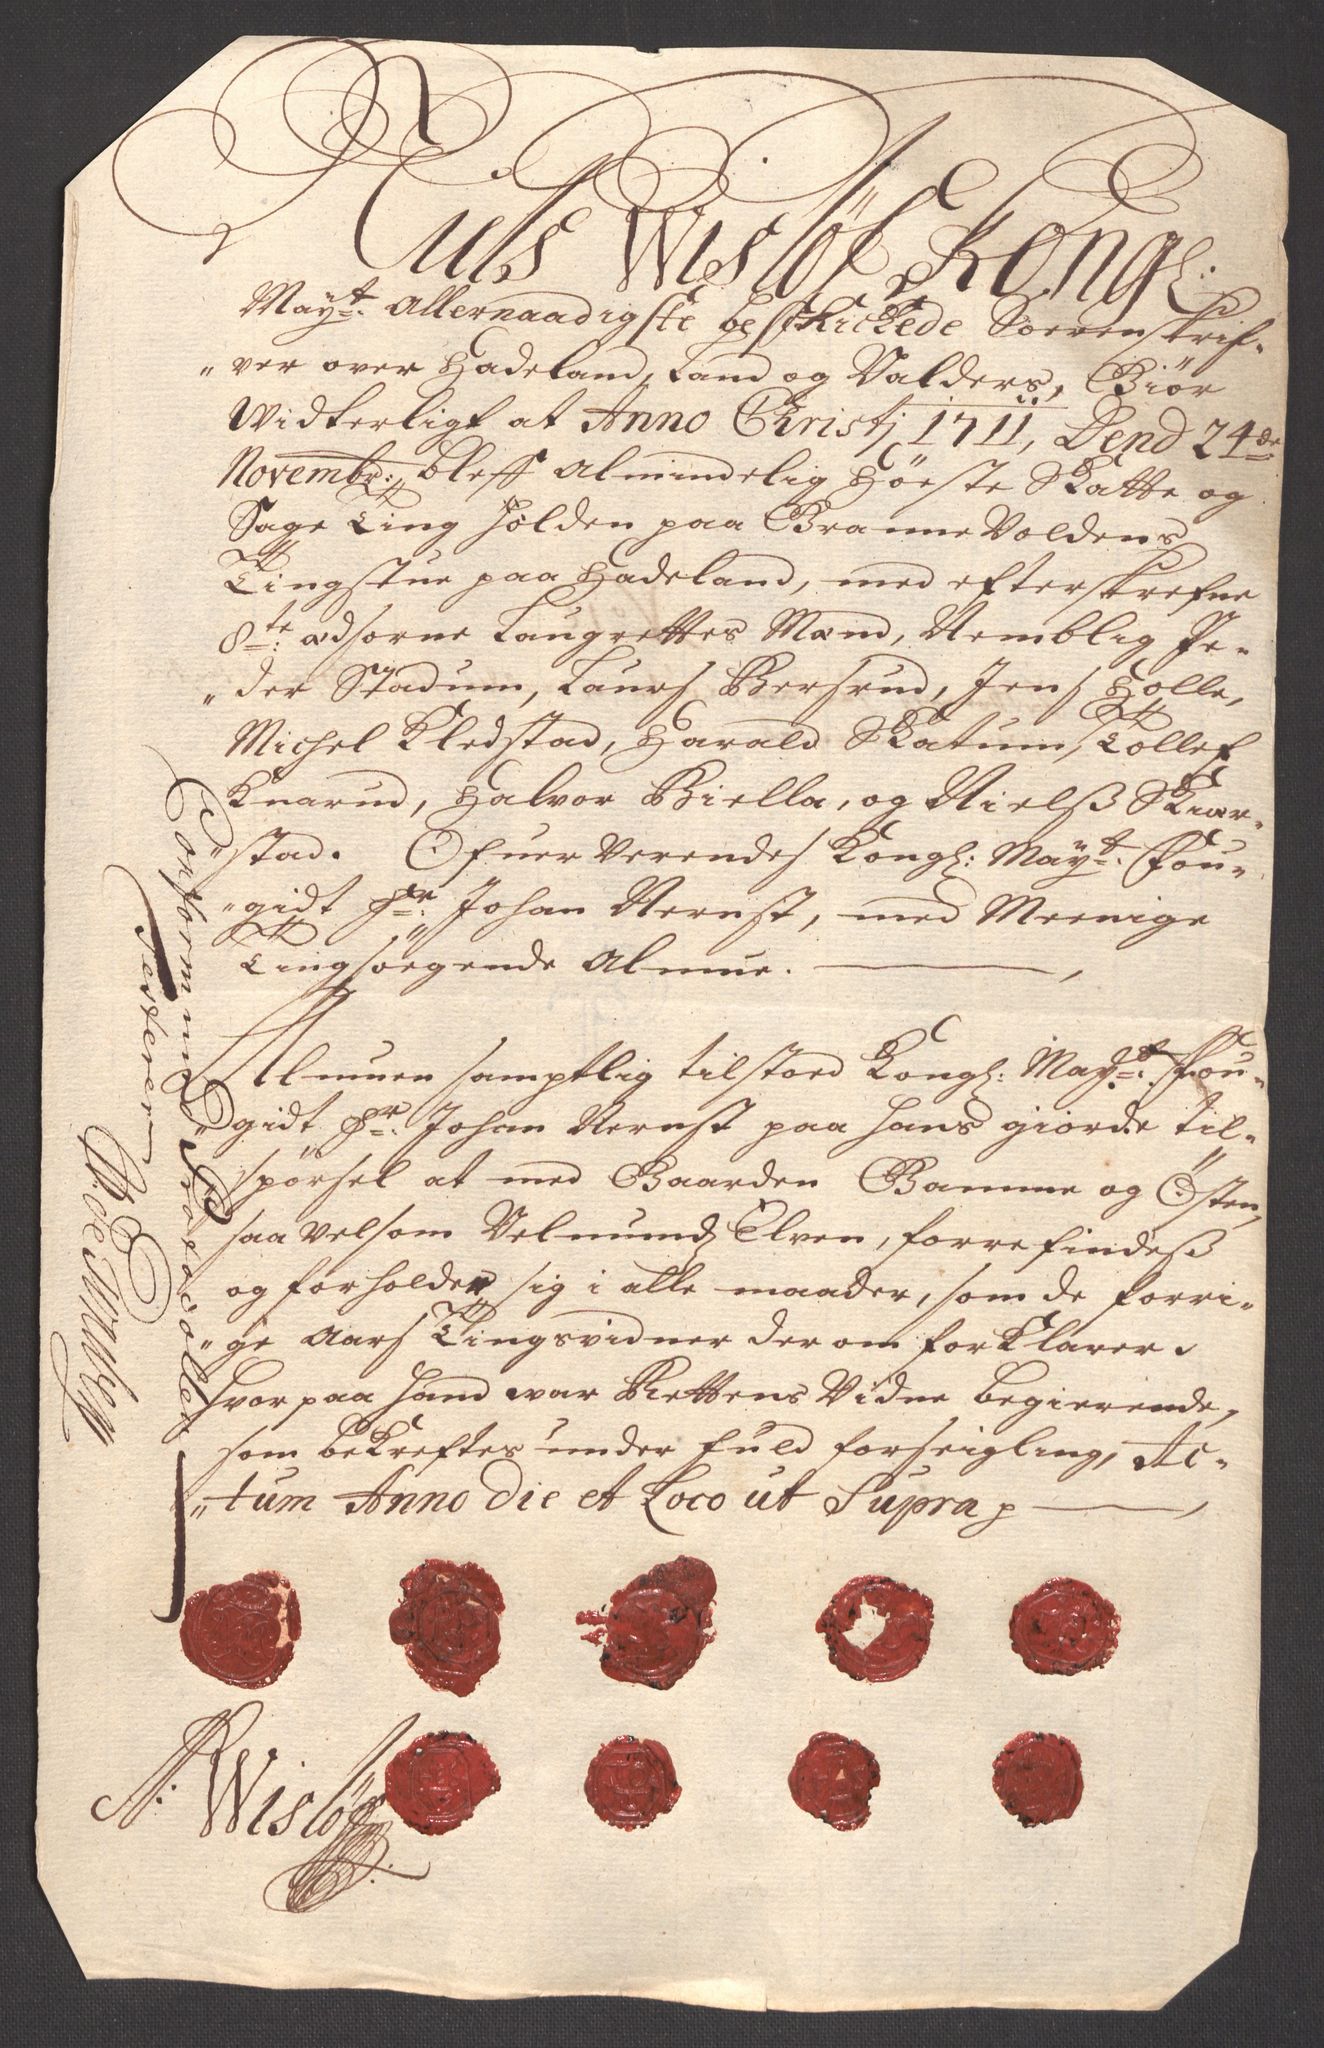 Nils Wislöf Kongl:
Mayt: Allernaadigste beschickede Sorenskrif-
"ver over Hadeland, Land og Valders, Giör
Widterligt at Anno Christj 1711, Dend 24de
Novembr: blef Almindelig Høste Skatte og
Sage Ting Holden paa Granne Voldens
Tingstue paa Hadeland, med efterskrefne
8te:ædsorne Laugrettes Mænd, Nemblig Pe-
"der Stadum, Laurs Bersrud, Jens Holle,
Michel Kledstad, Harald Skatum, Tollef
Knarud, Halvor Biella, og Nielß Skiær-
"stad. Ofuerværendes Kongl: Mayt: Fou-
"gidt Hr: Johan Nernst, med Meenige
Tingsøgende Almue.
Almuen samptlig tilstoed Kongl: Mayt: Fou-
"gidt Hr: Johan Nernst paa hans giorde til-
spörsel at med Gaarden Gamme og Østen,
saavelsom Velmunds Elven, forrefindeß
og forholder sig i alle maader, som de forri-
"ge Aars Tingsvidner derom forklarer.
Hvorpaa Hand var Rettens Vidne begierende,
som bekreftes under fuld forseigling, Ac-
"tum Anno die et Loco ut Supra
N: Wislöf
Conform med Protocollen
Testerer